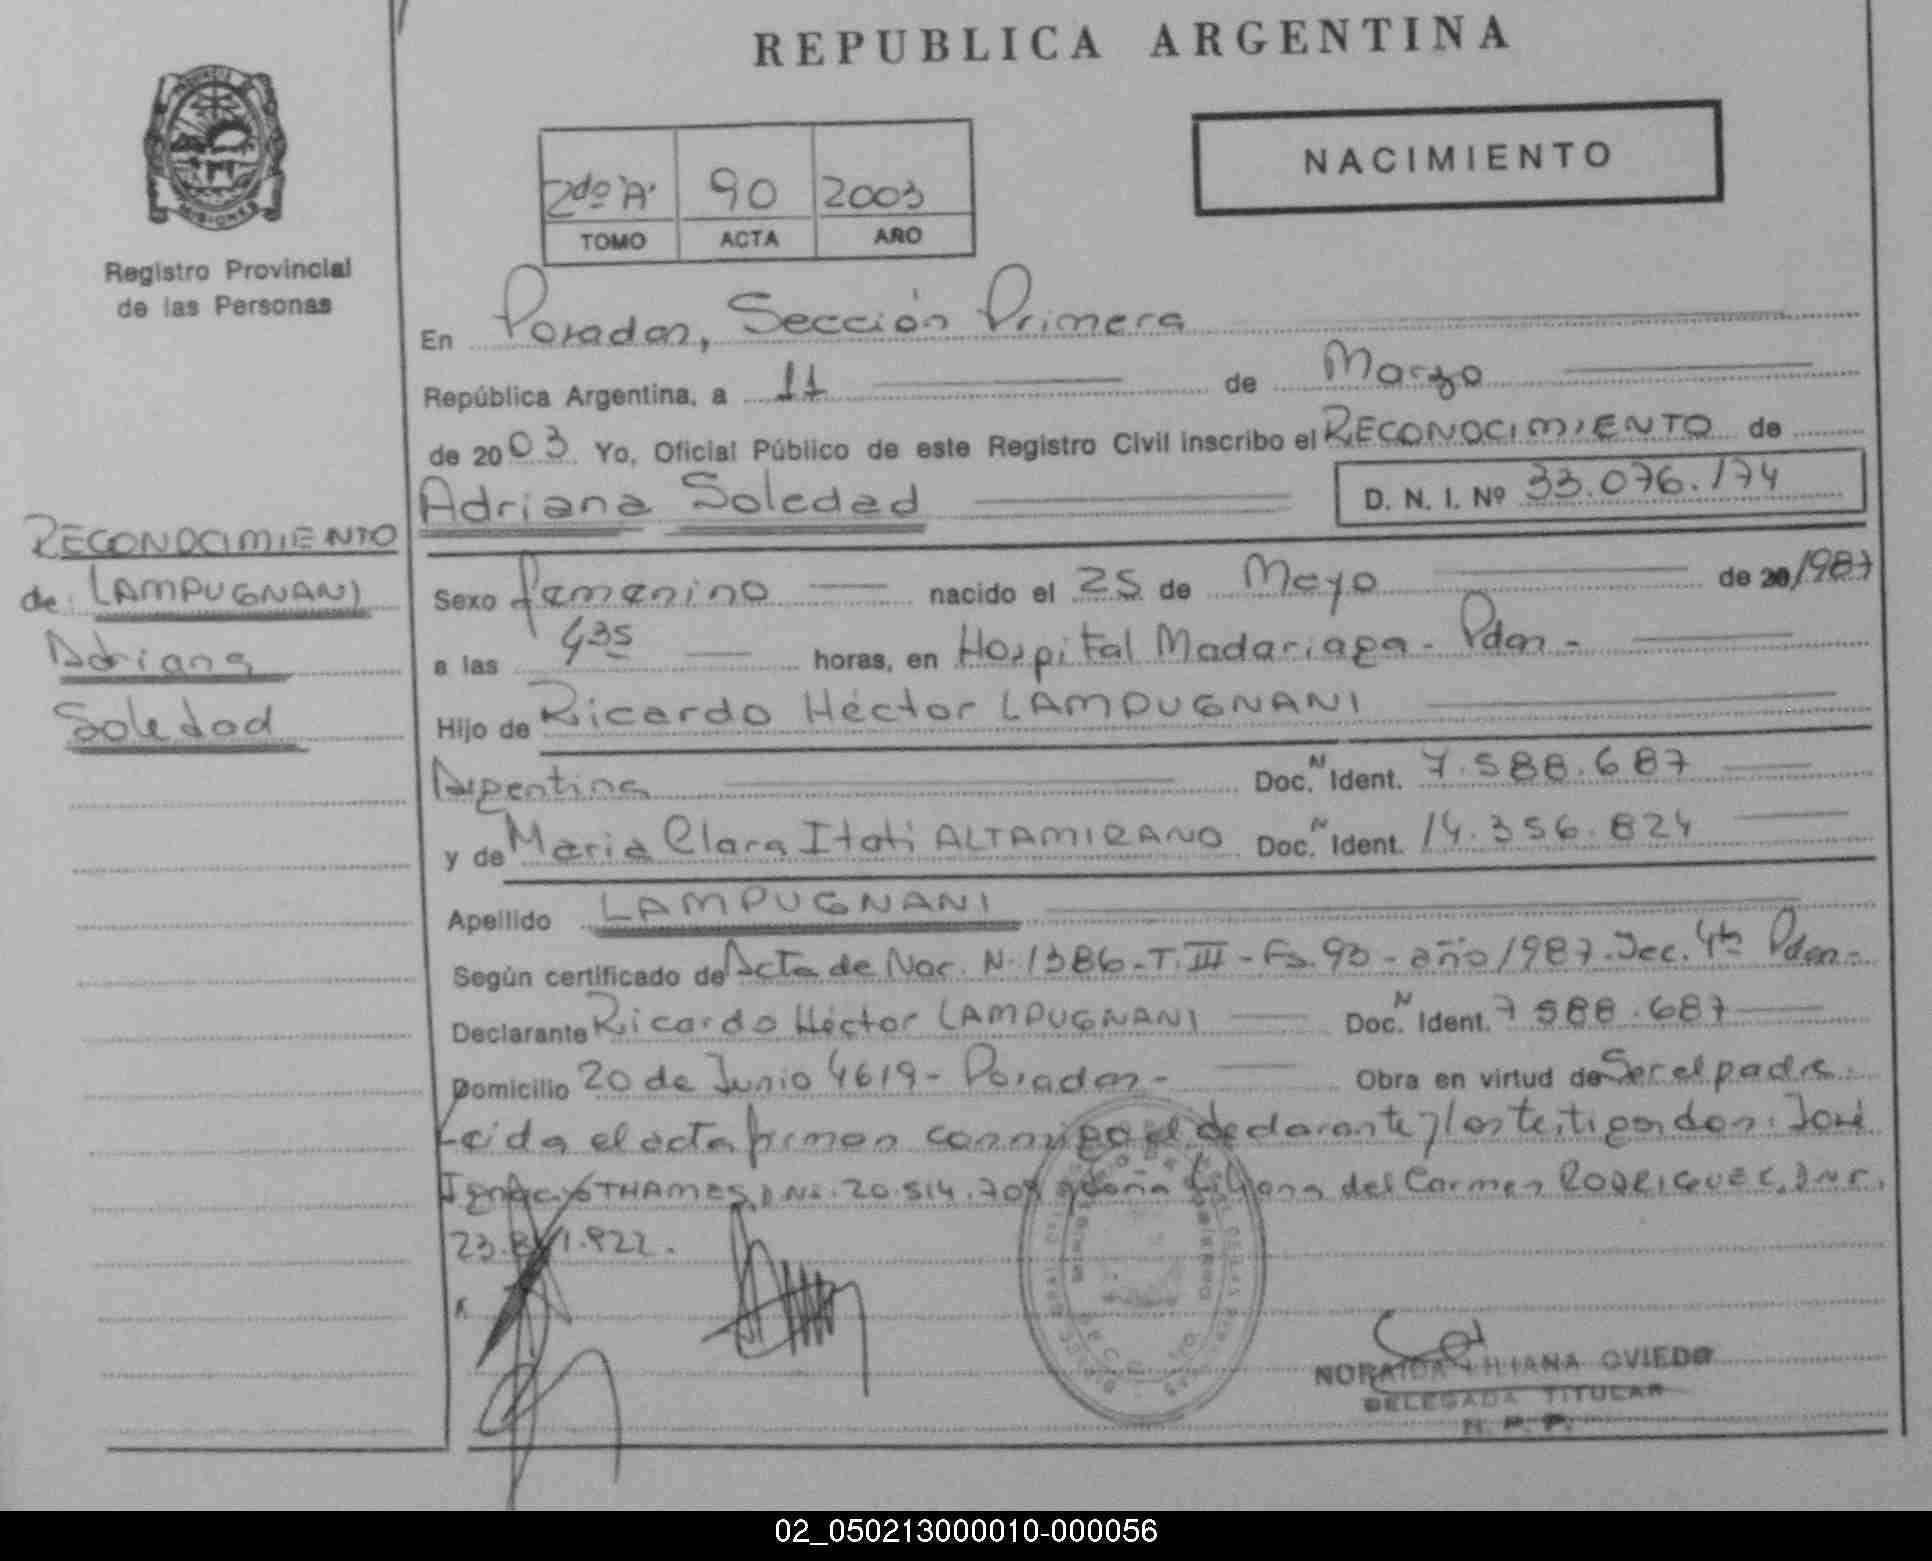 REPUBLICA ARGENTINA
PROVINCIA
MISIONES
Registro Provincial
de las Personas
2do "A" 90 2003
TOMO ACTA AÑO
NACIMIENTO
En Posadas, Sección Primera
República Argentina, a 11 de Marzo
de 2003. Yo, Oficial Público de este Registro Civil inscribo el RECONOCIMIENTO de
Adriana Soledad D. N. I. Nº 33.076.174
RECONOCIMIENTO
de: LAMPUGNANI
Adriana
Soledad
Sexo femenino nacido el 25 de Mayo de 20/1987
a las 4 35 horas, en Hospital Madariaga - Pdas -
Hijo de Ricardo Héctor LAMPUGNANI
Argentina Doc. N Ident. 7.588.687
y de Maria Clara Itati ALTAMIRANO Doc. N Ident. 14.356.824
Apellido LAMPUGNANI
Según certificado de Acta de Nac. N. 1386 - T. III - Fs. 93 - año 1987. Sec. 4ta Pdas -
Declarante Ricardo Héctor LAMPUGNANI Doc. N Ident. 7 588.687
Domicilio 20 de Junio 4619 - Posadas - Obra en virtud de Ser el padre.
Leida el acta firman conmigo el declarante y los testigos don: José
Ignacio THAMES, DNI. 20.514.709 y doña Liliana del Carmen RODRIGUEZ, DNI.
1.922.
NORAIDA LILIANA OVIEDO
DELEGADA TITULAR
R. P. P.
02_050213000010-000056